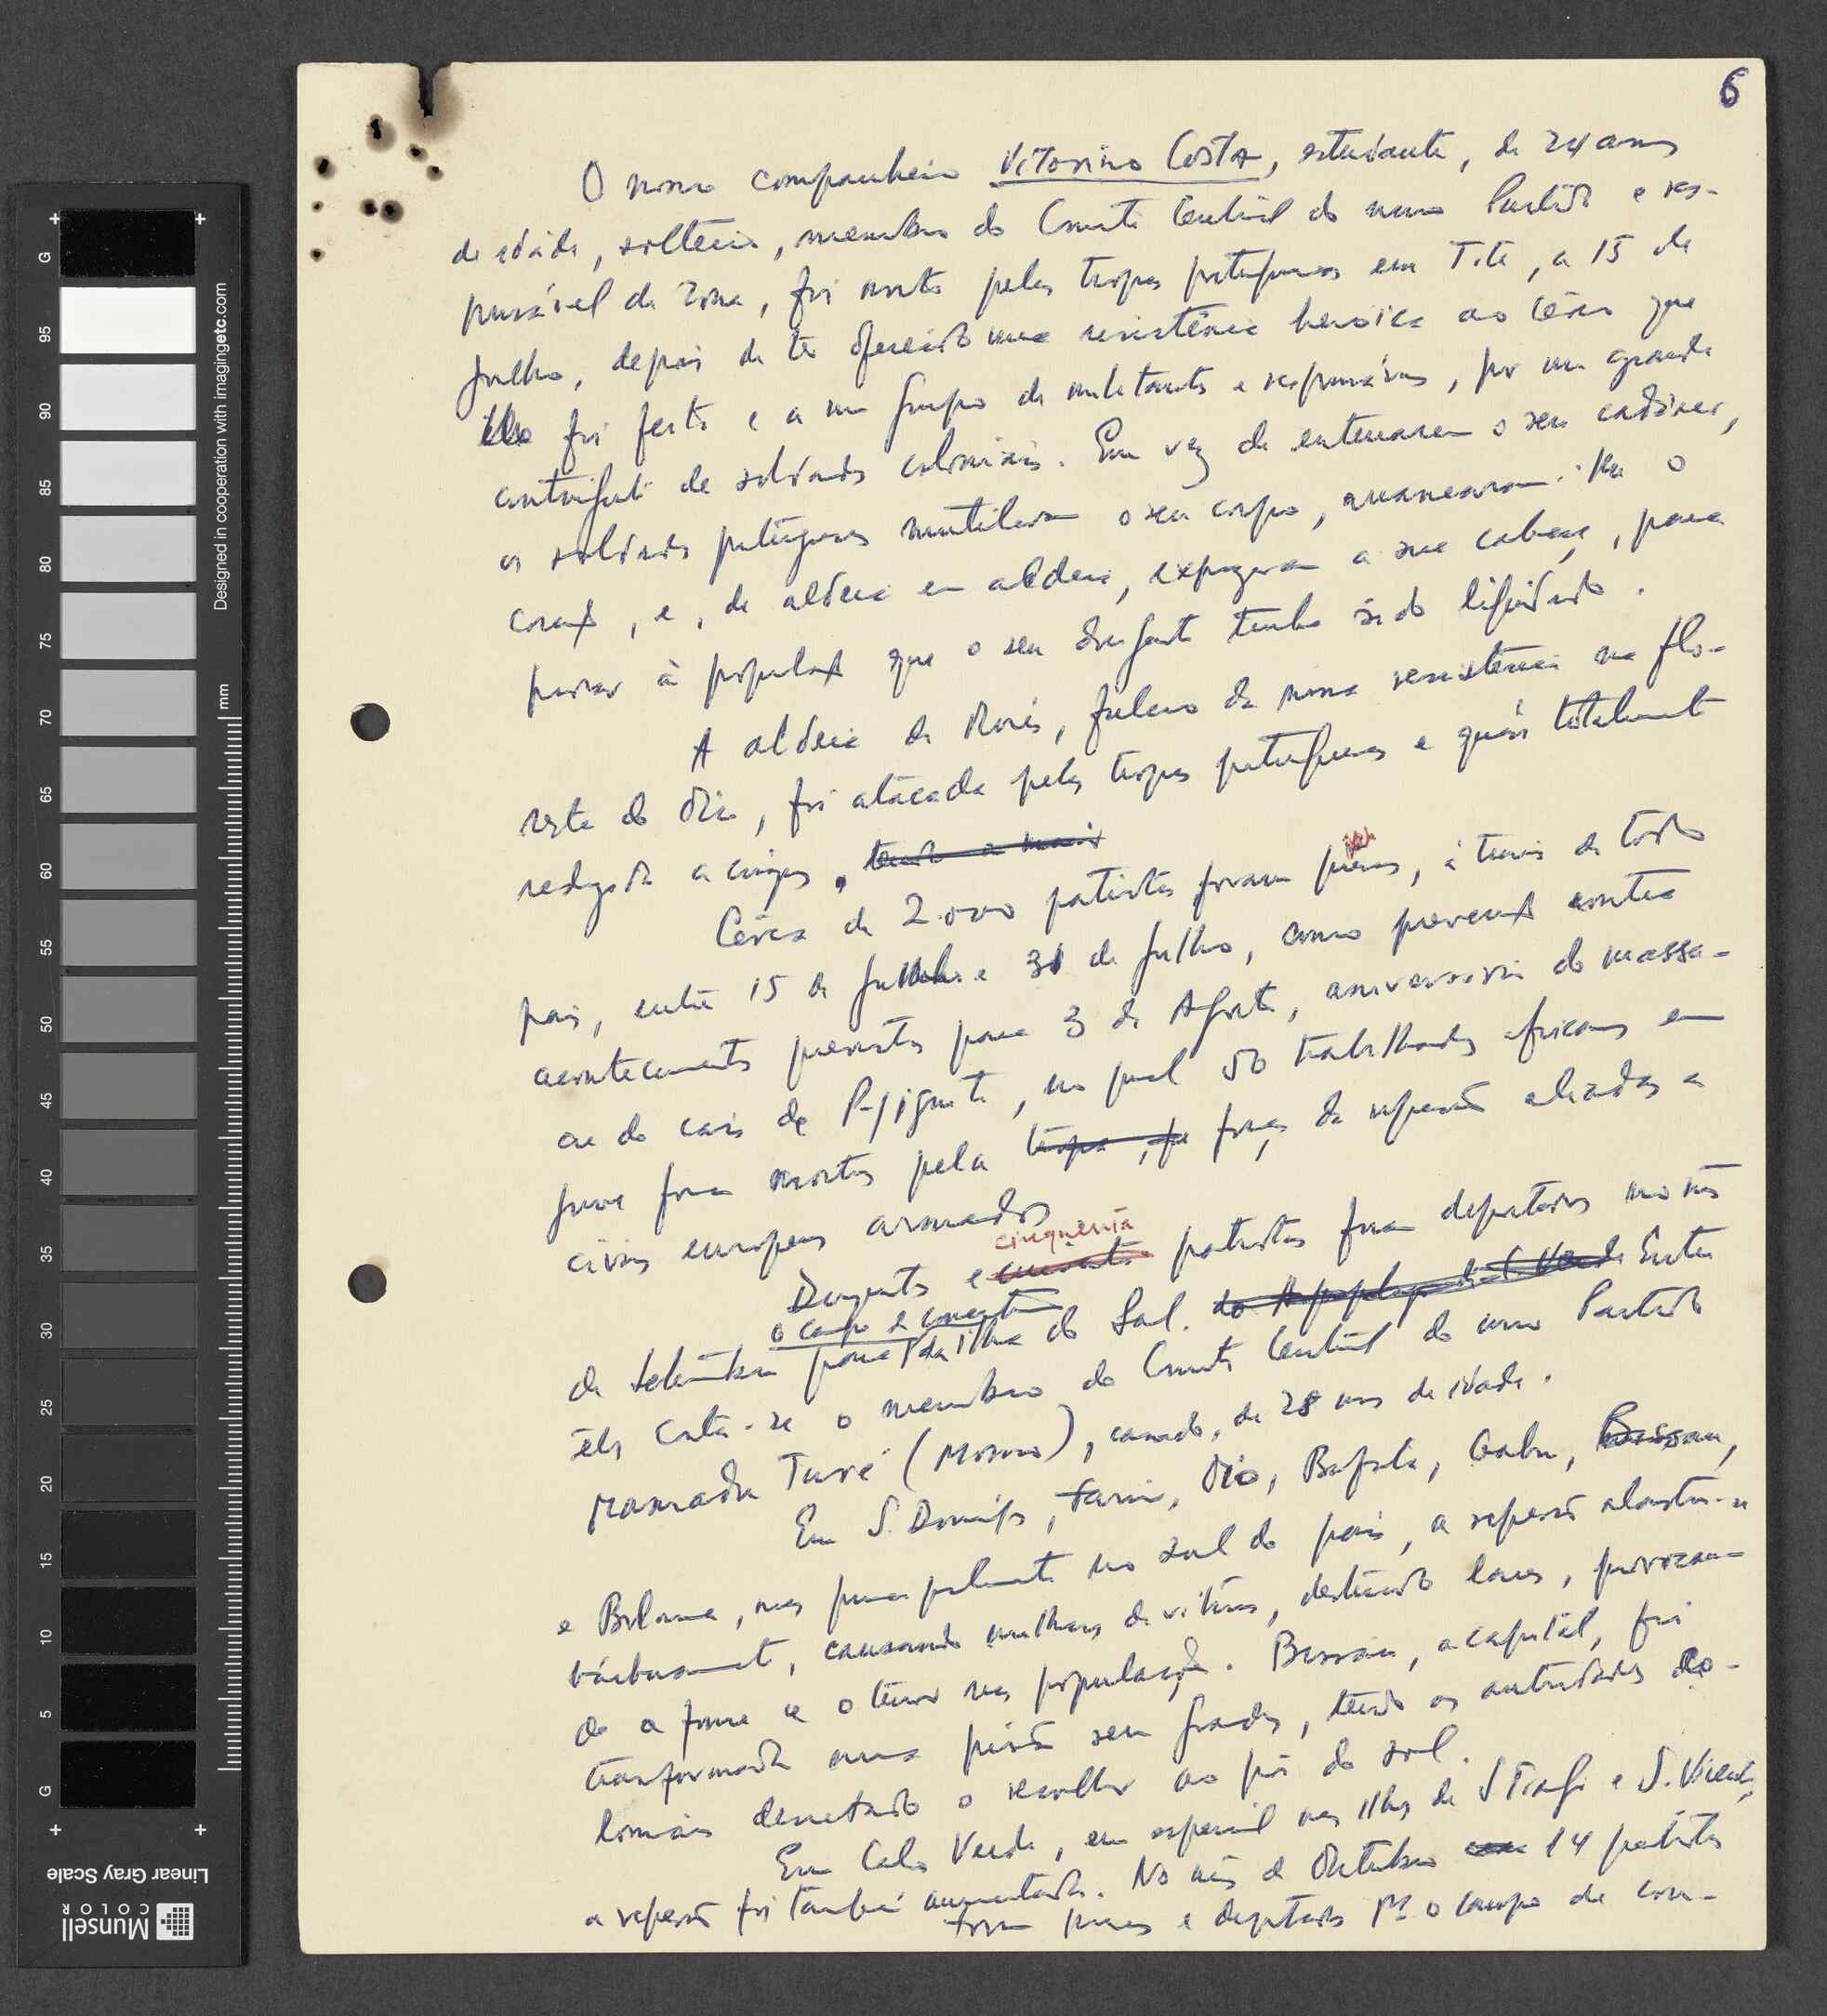 6
O nosso companheiro Vitorino Costa, estudante, de 24 anos
de idade, solteiro, membro do Comité Central do nosso Partido e res-
ponsável da Zona, foi morto pelas tropas portuguesas em Tite, a 15 de
Julho, depois de ter oferecido uma resistência heroica ao cêrco que
lhe foi feito e a um grupo de militantes e responsáveis, por um grande
contingente de soldados coloniais. Em vez de enterrarem o seu cadáver,
os soldados portugueses mutilaram o seu corpo, arrancaram-lhe o
coração, e, de aldeia em aldeia, expuzeram a sua cabeça, para
provar à população que o seu dirigente tinha sido liquidado.
A aldeia de Morés, da nossa resistência na flo-
resta do Oio, foi atacada pelas tropas portuguesas e quási totalmente
reduzida a cinzas, tendo a mais
Cêrca de 2.000 patriotas foram presos, através de todo o
país, entre 15 de Julho e 31 de Julho, como prevenção contra
acontecimentos previstos para 3 de Agosto, aniversário do massa-
cre do cais de Pigiguiti, no qual 50 trabalhadores africanos em
greve foram mortos pela tropa, forças da repressão aliadas a
civis europeus armados
cinquenta
Duzentos e patriotas foram deportados no mês
o campo de concentração
de Setembro para da Ilha do Sal. do Arquipélago de C. Verde Entre
êles conta-se o membro do Comité Central do nosso Partido
Mamadu Turé (Momo), casado, de 28 anos de idade.
Em S. Domingos, Farim, Oio, Bafatá, Gabu, Bissau,
e Bolama, mas principalmente no sul do país, a repressão alastra-se
bárbaramente, causando milhares de vítimas, destruindo lares, provocan-
do a fome e o terror nas populações. Bissau, a capital, foi
transformada numa prisão sem grades, tendo as autoridades co-
loniais decretado o recolher ao pôr do sol.
Em Cabo Verde, em especial nas Ilhas de S Tiago e S. Vicente,
a repressão foi também aumentada. No mês de Outubro 14 patriotas
foram presos e deportados pª o campo de con-
Designed in cooperation with imagingetc.com
mm
G 95 90 85 80 75 70 65 60 55 50 45 40 35 30 25 20 15 10 5 G
Linear Gray Scale
Munsell
COLOR